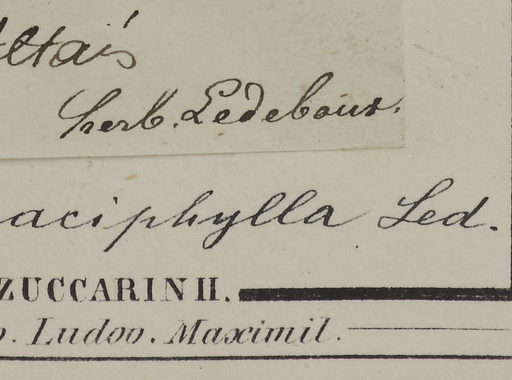 Altais
herb. Ledebour.
aciphylla Led.
ZUCCARINII.
o. Ludov. Maximil.